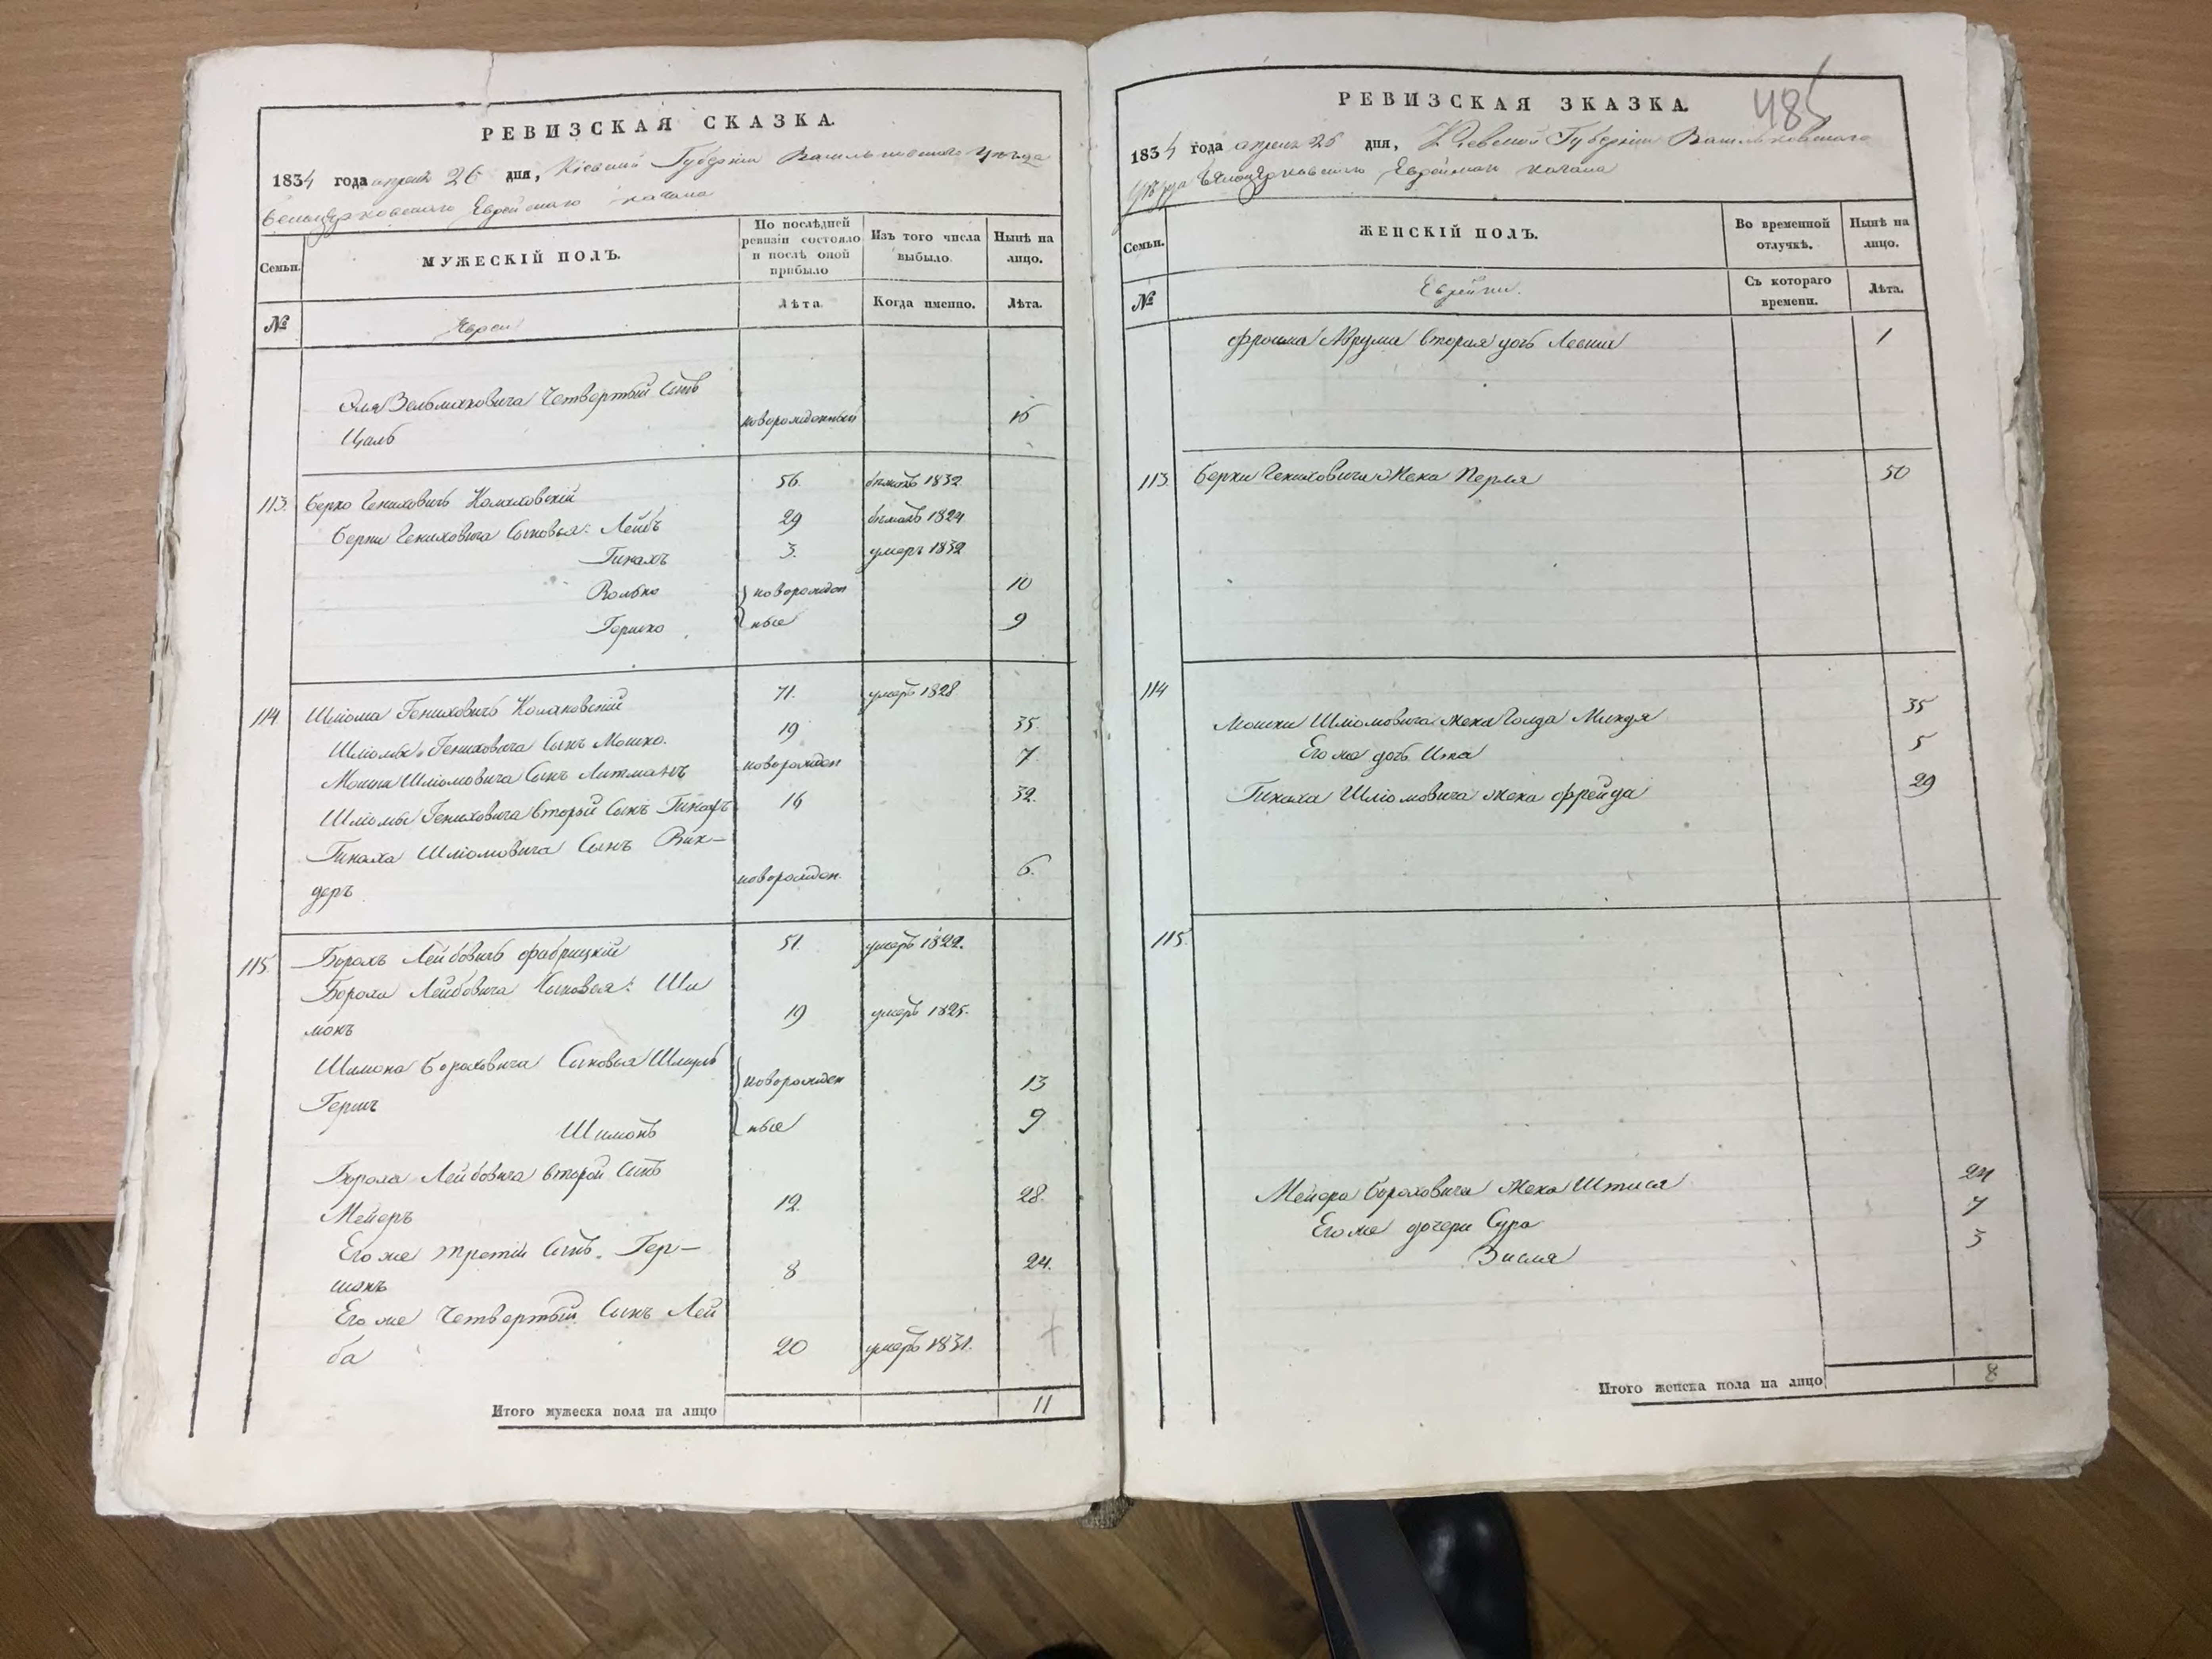 РЕВИЗСКАЯ СКАЗКА.
1834 года апреля 26 дня, Кіевской Губерніи Васильковскаго уезда
Белоцерковскаго Еврейскаго кагала
Семьи. МУЖЕСКІЙ ПОЛЪ. По послѣдней ревизіи состояло и послѣ оной прибыло Изъ того числа выбыло. Нынѣ на лицо.
№ Евреи Лѣта. Когда именно. Лѣта.
Четвертый сынъ
Цаль новорожденный 15
113. Берко Гениховичъ 56. бѣжалъ 1832
Берки Гениховича сыновья: Лейбъ 29 бѣжалъ 1824
Пинахъ 3. умеръ 1832
Волько новорожден 10
Гершко ные 9
114 Шліома Гениховичъ 71. умеръ 1828
Шліомы Гениховича сынъ Мошко. 19 35.
Мошки Шліомовича сынъ Литманъ новорожден 7
Шліомы Гениховича вторый сынъ Пинахъ 16 32.
Пинаха Шліомовича сынъ
деръ новорожден. 6.
115. Борохъ Лейбовичъ Фабрицкій 51. умеръ 1822.
Бороха Лейбовича сыновья: Ши
монъ 19 умеръ 1825.
Шимона Бороховича сыновья Шмуль
Гершъ новорожден 13
Шимонъ ные 9
Бороха Лейбовича второй сынъ
Мейеръ 12. 28.
Его же третій сынъ Гер-
шонъ 8 24.
Его же Четвертый сынъ Лей
ба 20 умеръ 1831.
Итого мужеска пола на лицо 11
485
РЕВИЗСКАЯ ЗКАЗКА.
1834 года апреля 26 дня, Кіевской Губерніи Васильковскаго
уезда Белоцерковскаго Еврейскаго кагала
Семьи. ЖЕНСКІЙ ПОЛЪ. Во временной отлучкѣ. Нынѣ на лицо.
№ Еврейки. Съ котораго времени. Лѣта.
вторая дочь 1
113 Берки Гениховича жена Перля 50
114
Мошки Шліомовича жена Голда Миндя 35
Его же дочь 5
Пинаха Шліомовича жена Фрейда 29
115.
Мейера Бороховича жена 24
Его же дочери Сура 7
Зисля 3
Итого женска пола на лицо 8